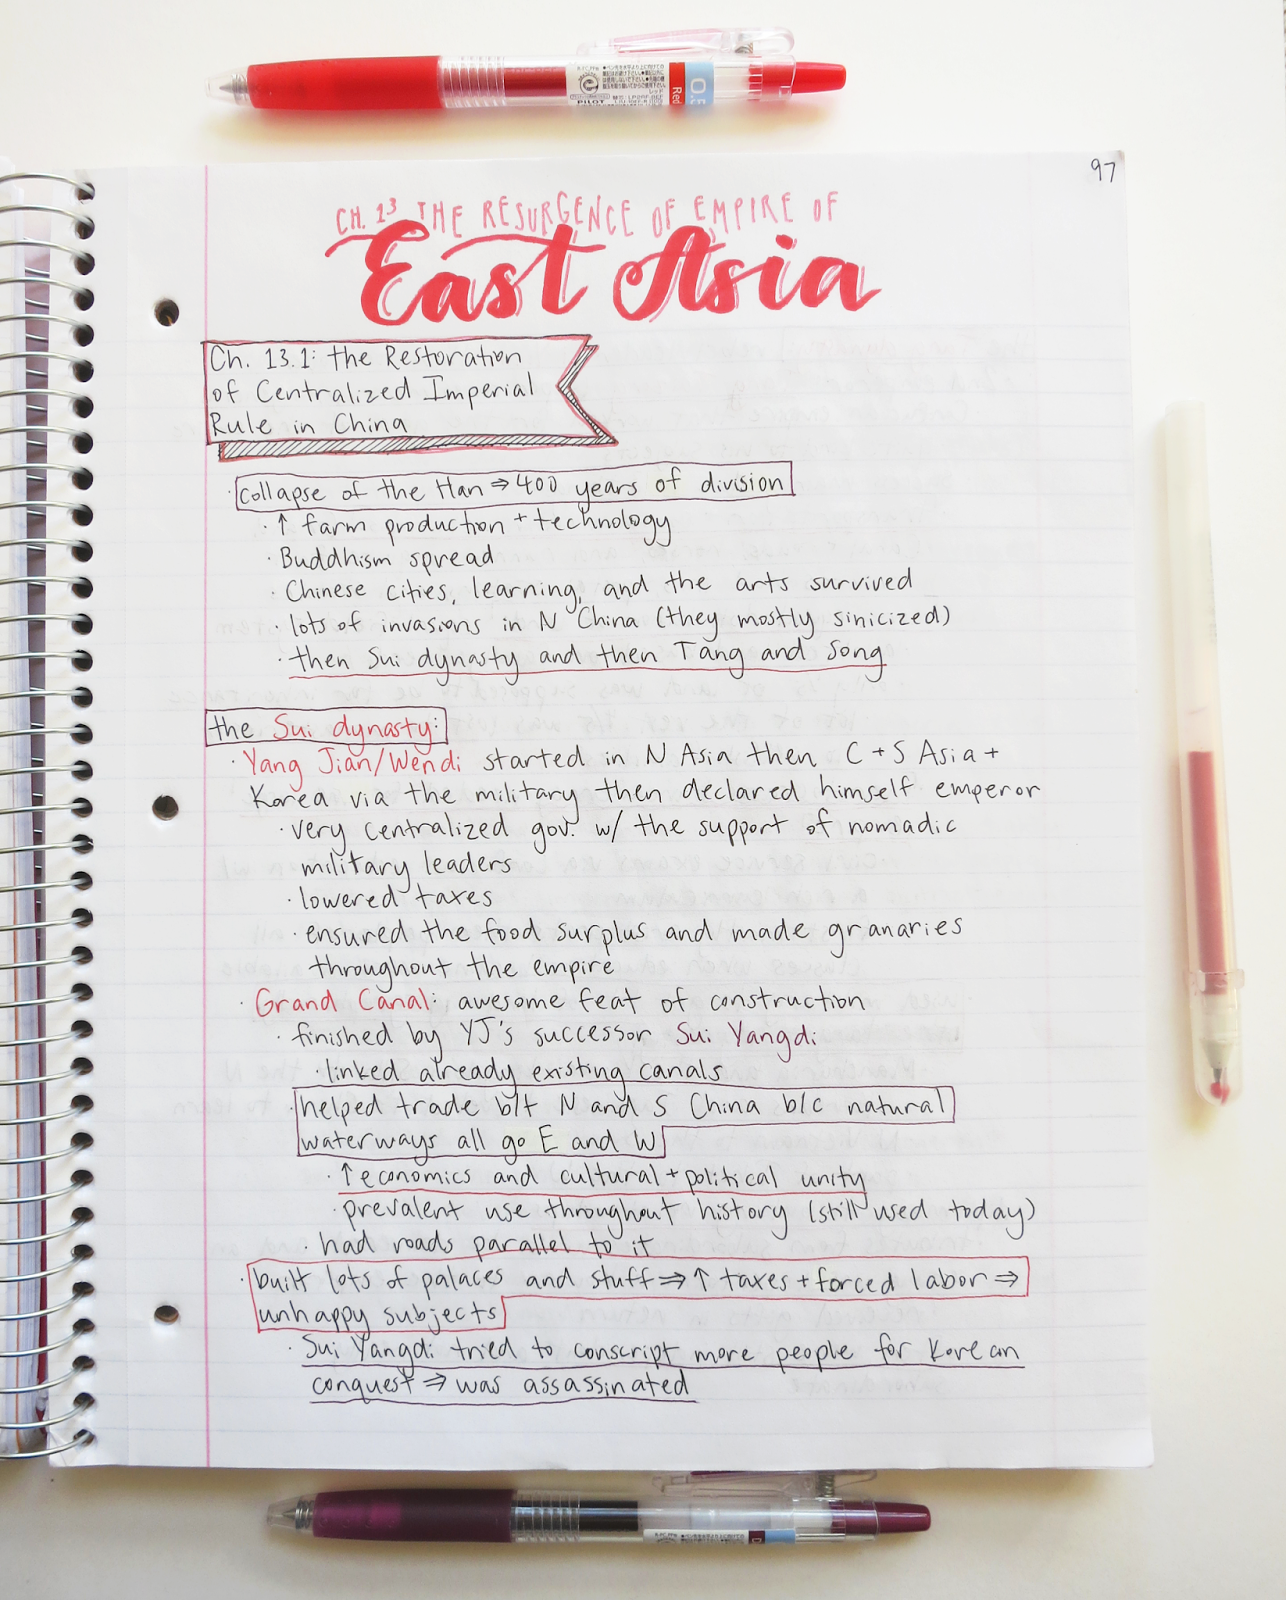 O.5
Red
PILOT
97
CH. 13 THE RESURGENCE OF EMPIRE OF
East Asia
Ch. 13.1: the Restoration
of Centralized Imperial
Rule in China
· collapse of the Han ⇒ 400 years of division
· ↑ farm production + technology
· Buddhism spread
· Chinese cities, learning, and the arts survived
· lots of invasions in N China (they mostly sinicized)
· then Sui dynasty and then Tang and Song
the Sui dynasty:
· Yang Jian/Wendi started in N Asia then C + S Asia +
Korea via the military then declared himself emperor
· very centralized gov. w/ the support of nomadic
military leaders
· lowered taxes
· ensured the food surplus and made granaries
throughout the empire
· Grand Canal: awesome feat of construction
· finished by YJ's successor Sui Yangdi
· linked already existing canals
· helped trade b/t N and S China b/c natural
waterways all go E and W
· ↑ economics and cultural + political unity
· prevalent use throughout history (still used today)
· had roads parallel to it
· built lots of palaces and stuff ⇒ ↑ taxes + forced labor ⇒
unhappy subjects
· Sui Yangdi tried to conscript more people for Korean
conquest ⇒ was assassinated